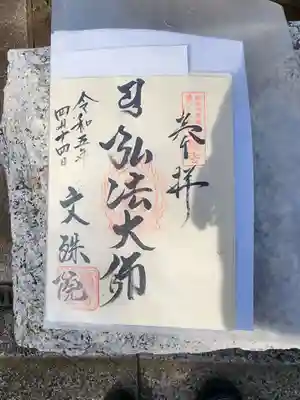 奉拝
弘法大师
文殊院
令和五年
四月十四日